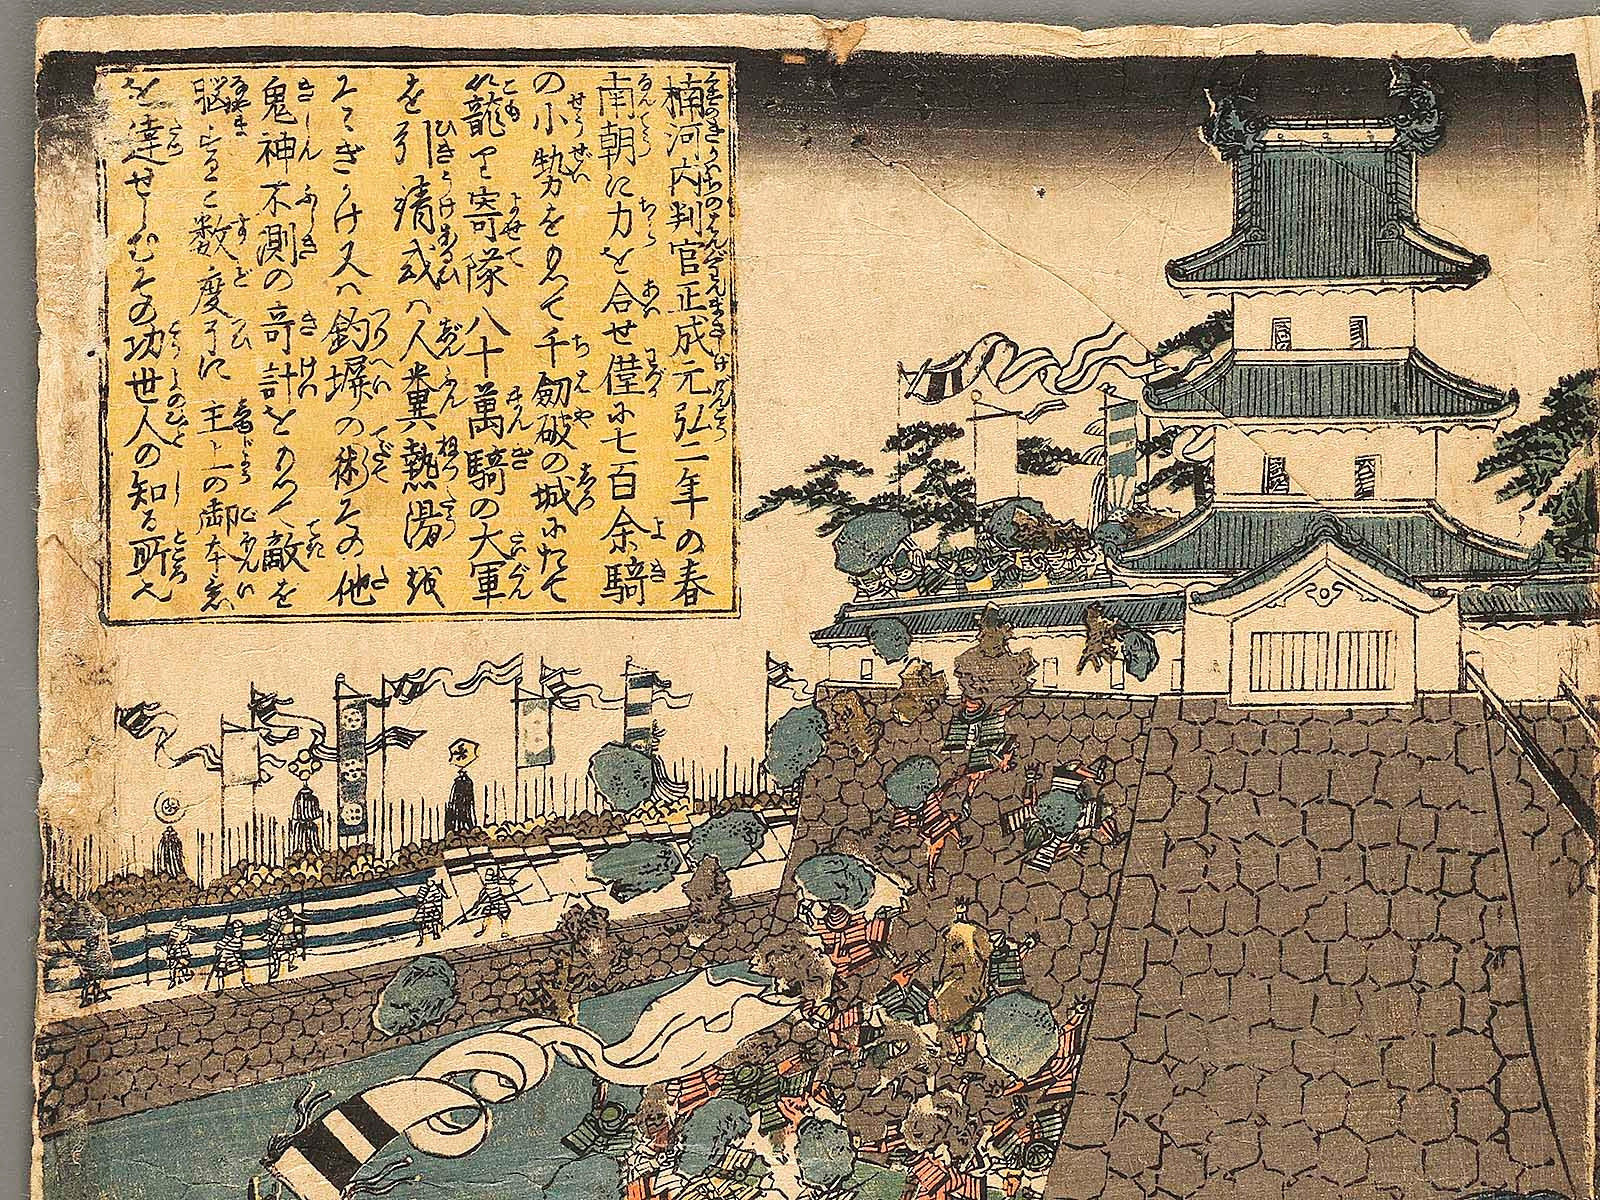 楠河内判官正成元弘二年の春
南朝に力を合せ僅に七百余騎
の小勢を以て千劔破の城にたて
籠り寄隊八十萬騎の大軍
を引請或ハ人糞熱湯
そゝぎかけ又ハ釣塀の術その他
鬼神不測の奇計をもつて敵を
脳すこと数度
主上の御本意
を達せしむその功世人の知る所也